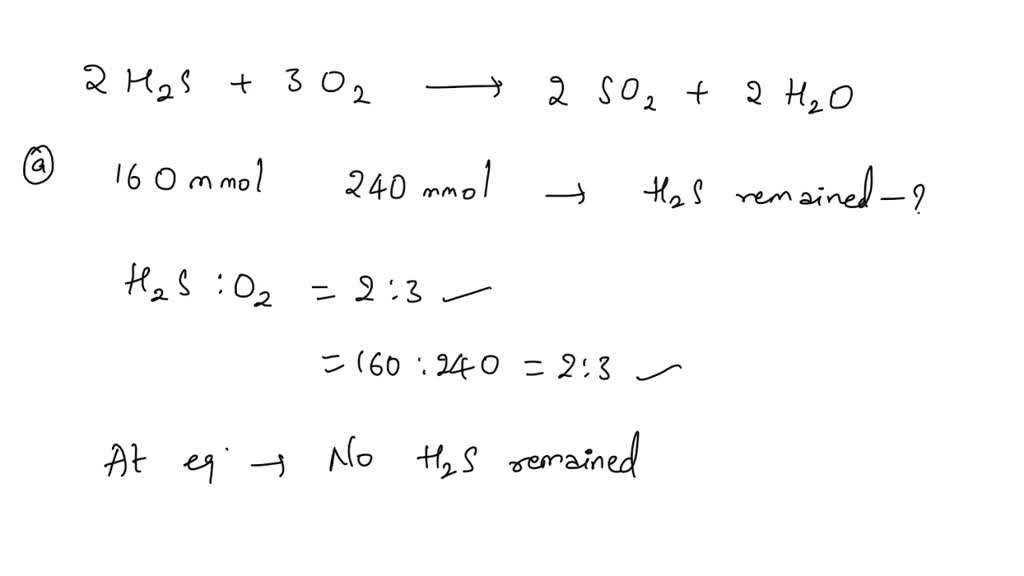 2 H₂S + 3 O₂ → 2 SO₂ + 2 H₂O
ⓐ 160 mmol 240 mmol → H₂S remained - ?
H₂S : O₂ = 2:3 ✓
= 160 : 240 = 2:3 ✓
At eq. → No H₂S remained